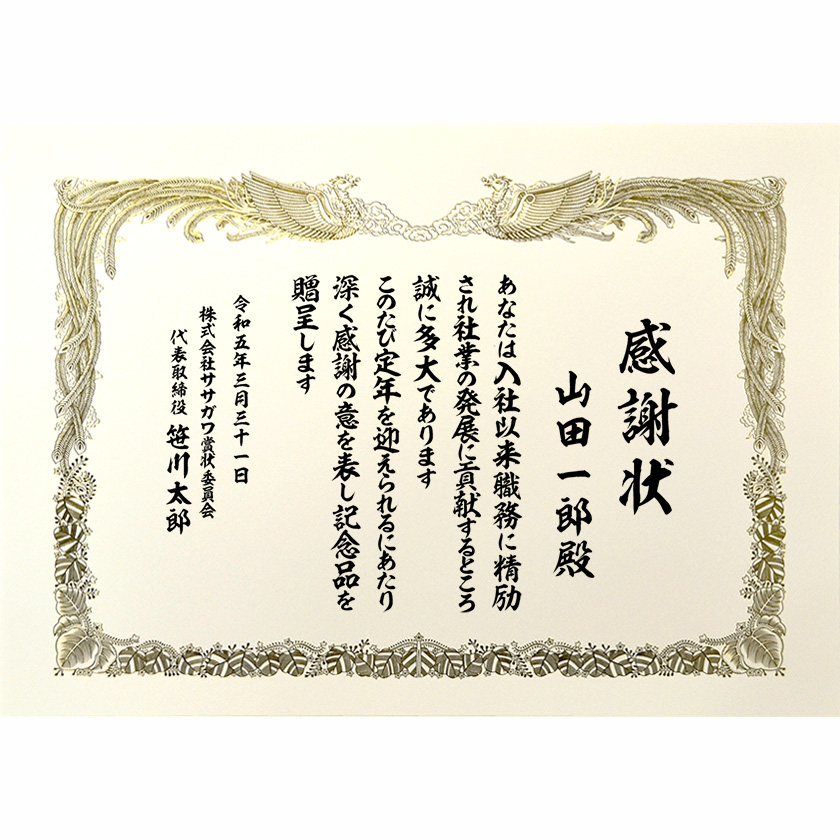 感謝状
山田一郎殿
あなたは入社以来職務に精励
され社業の発展に貢献するところ
誠に多大であります
このたび定年を迎えられるにあたり
深く感謝の意を表し記念品を
贈呈します
令和五年三月三十一日
株式会社ササガワ賞状委員会
代表取締役 笹川太郎